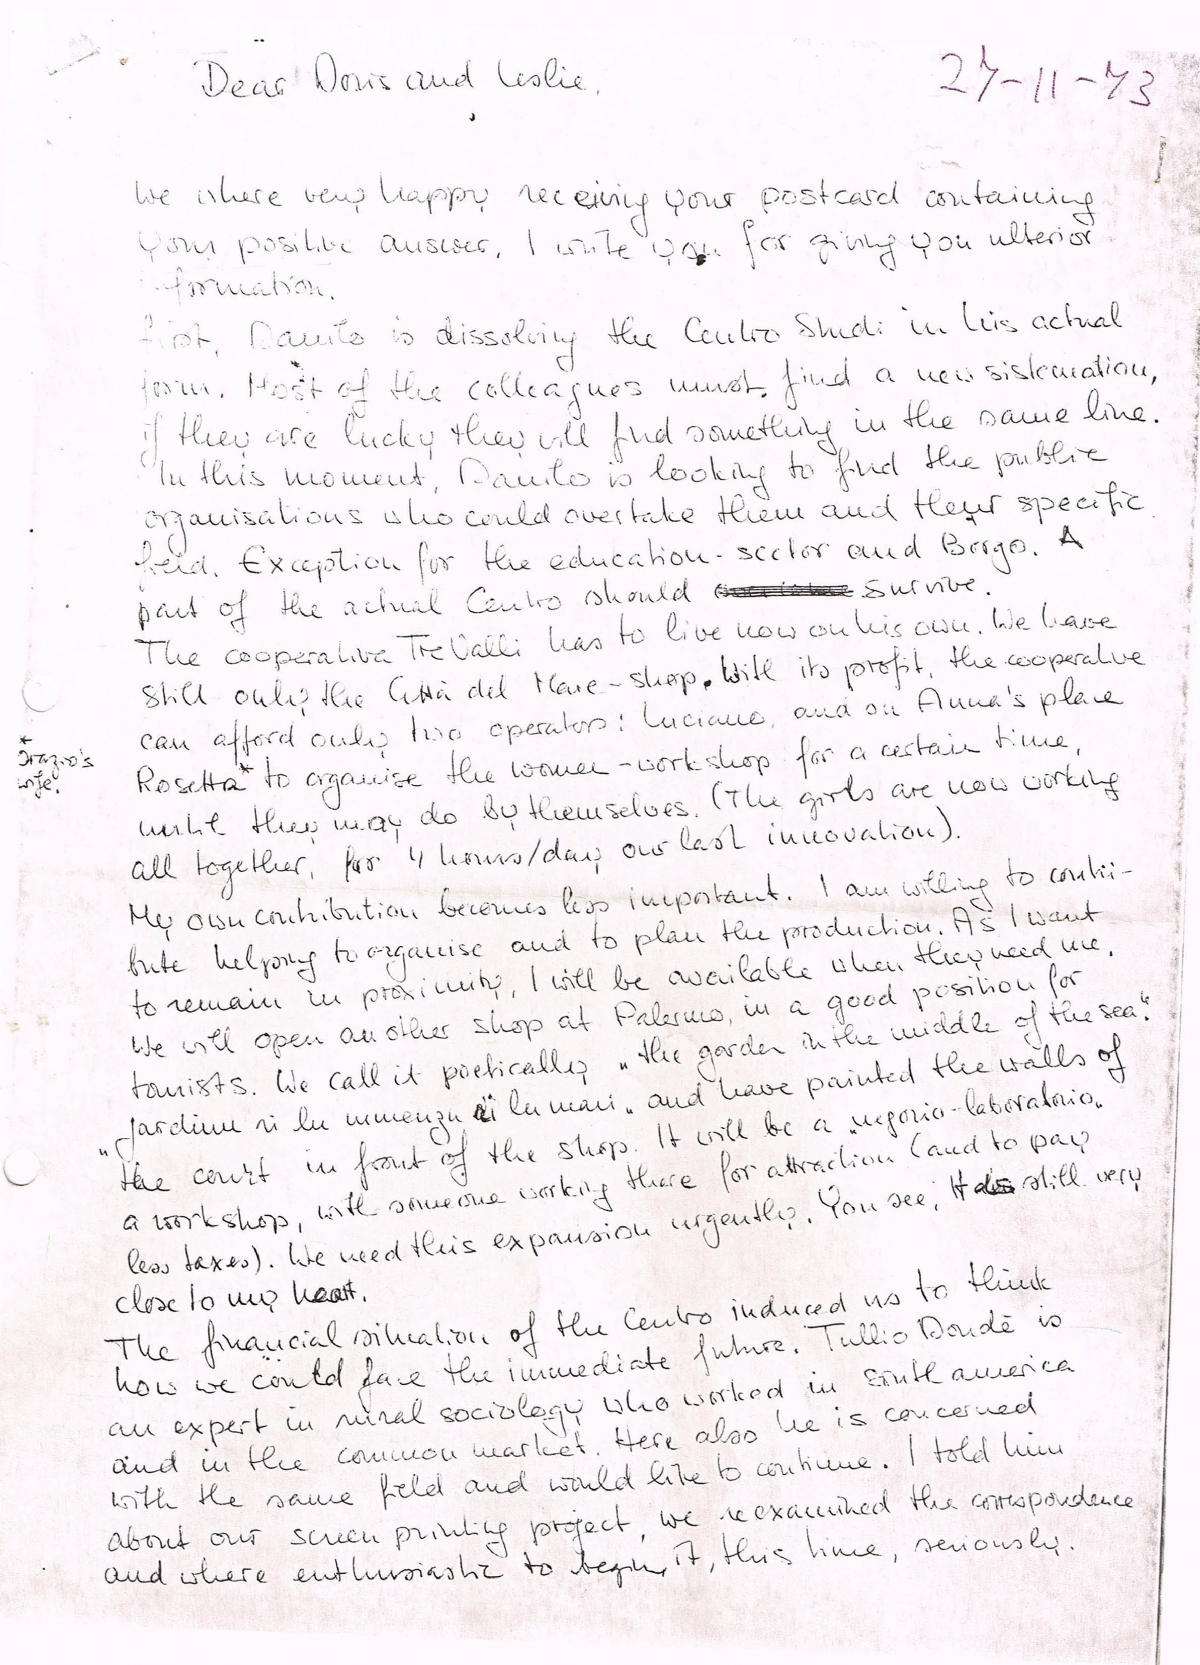 27-11-73
Dear Doris and Leslie,
We where very happy receiving your postcard containing
your positive answer. I write you for giving you ulterior
information.
first, Danilo is dissolving the Centro Studi in his actual
form. Most of the colleagues must find a new sistemation,
if they are lucky they will find something in the same line.
In this moment, Danilo is looking to find the public
organisations who could overtake them and their specific
field. Exception for the education-sector and Borgo. A
part of the actual Centro should survive.
The cooperativa TreValli has to live now on his own. We have
still only the Città del Mare-shop. With its profit, the cooperative
can afford only two operators: Luciano, and on Anna's place
Rosetta* to organise the women-workshop for a certain time,
* Orazio's
wife.
until they may do by themselves. (The girls are now working
all together, for 4 hours/day our last innovation).
My own contribution becomes less important. I am willing to contri-
bute helping to organise and to plan the production. As I want
to remain in proximity, I will be available when they need me.
We will open another shop at Palermo, in a good position for
tourists. We call it poetically „the garden in the middle of the sea."
„jardinu ni lu mmenzu di lu mari„ and have painted the walls of
the court in front of the shop. It will be a „negozio-laboratorio„
a workshop, with someone working there for attraction (and to pay
less taxes). We need this expansion urgently. You see, it is still very
close to my heart.
The financial situation of the Centro induced us to think
how we could face the immediate future. Tullio Dondè is
an expert in rural sociology who worked in South america
and in the common market. Here also he is concerned
with the same field and would like to continue. I told him
about our screen printing project, we reexamined the correspondence
and where enthusiastic to begin it, this time, seriously.